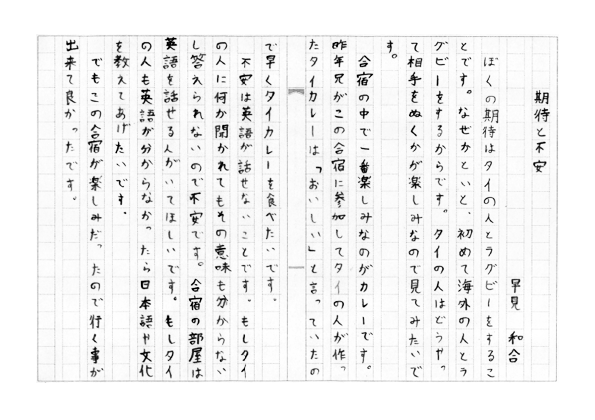 期待と不安
早見　和合
ぼくの期待はタイの人とラグビーをするこ
とです。なぜかというと、初めて海外の人とラ
グビーをするからです。タイの人はどうやっ
て相手をぬくかが楽しみなので見てみたいで
す。
合宿の中で一番楽しみなのがカレーです。
昨年兄がこの合宿に参加してタイの人が作っ
たタイカレーは「おいしい」と言っていたの
で早くタイカレーを食べたいです。
不安は英語が話せないことです。もしタイ
の人に何か聞かれてもその意味も分からない
し答えられないので不安です。合宿の部屋は
英語を話せる人がいてほしいです。もしタイ
の人も英語が分からなかったら日本語や文化
を教えてあげたいです。
でもこの合宿が楽しみだったので行く事が
出来て良かったです。